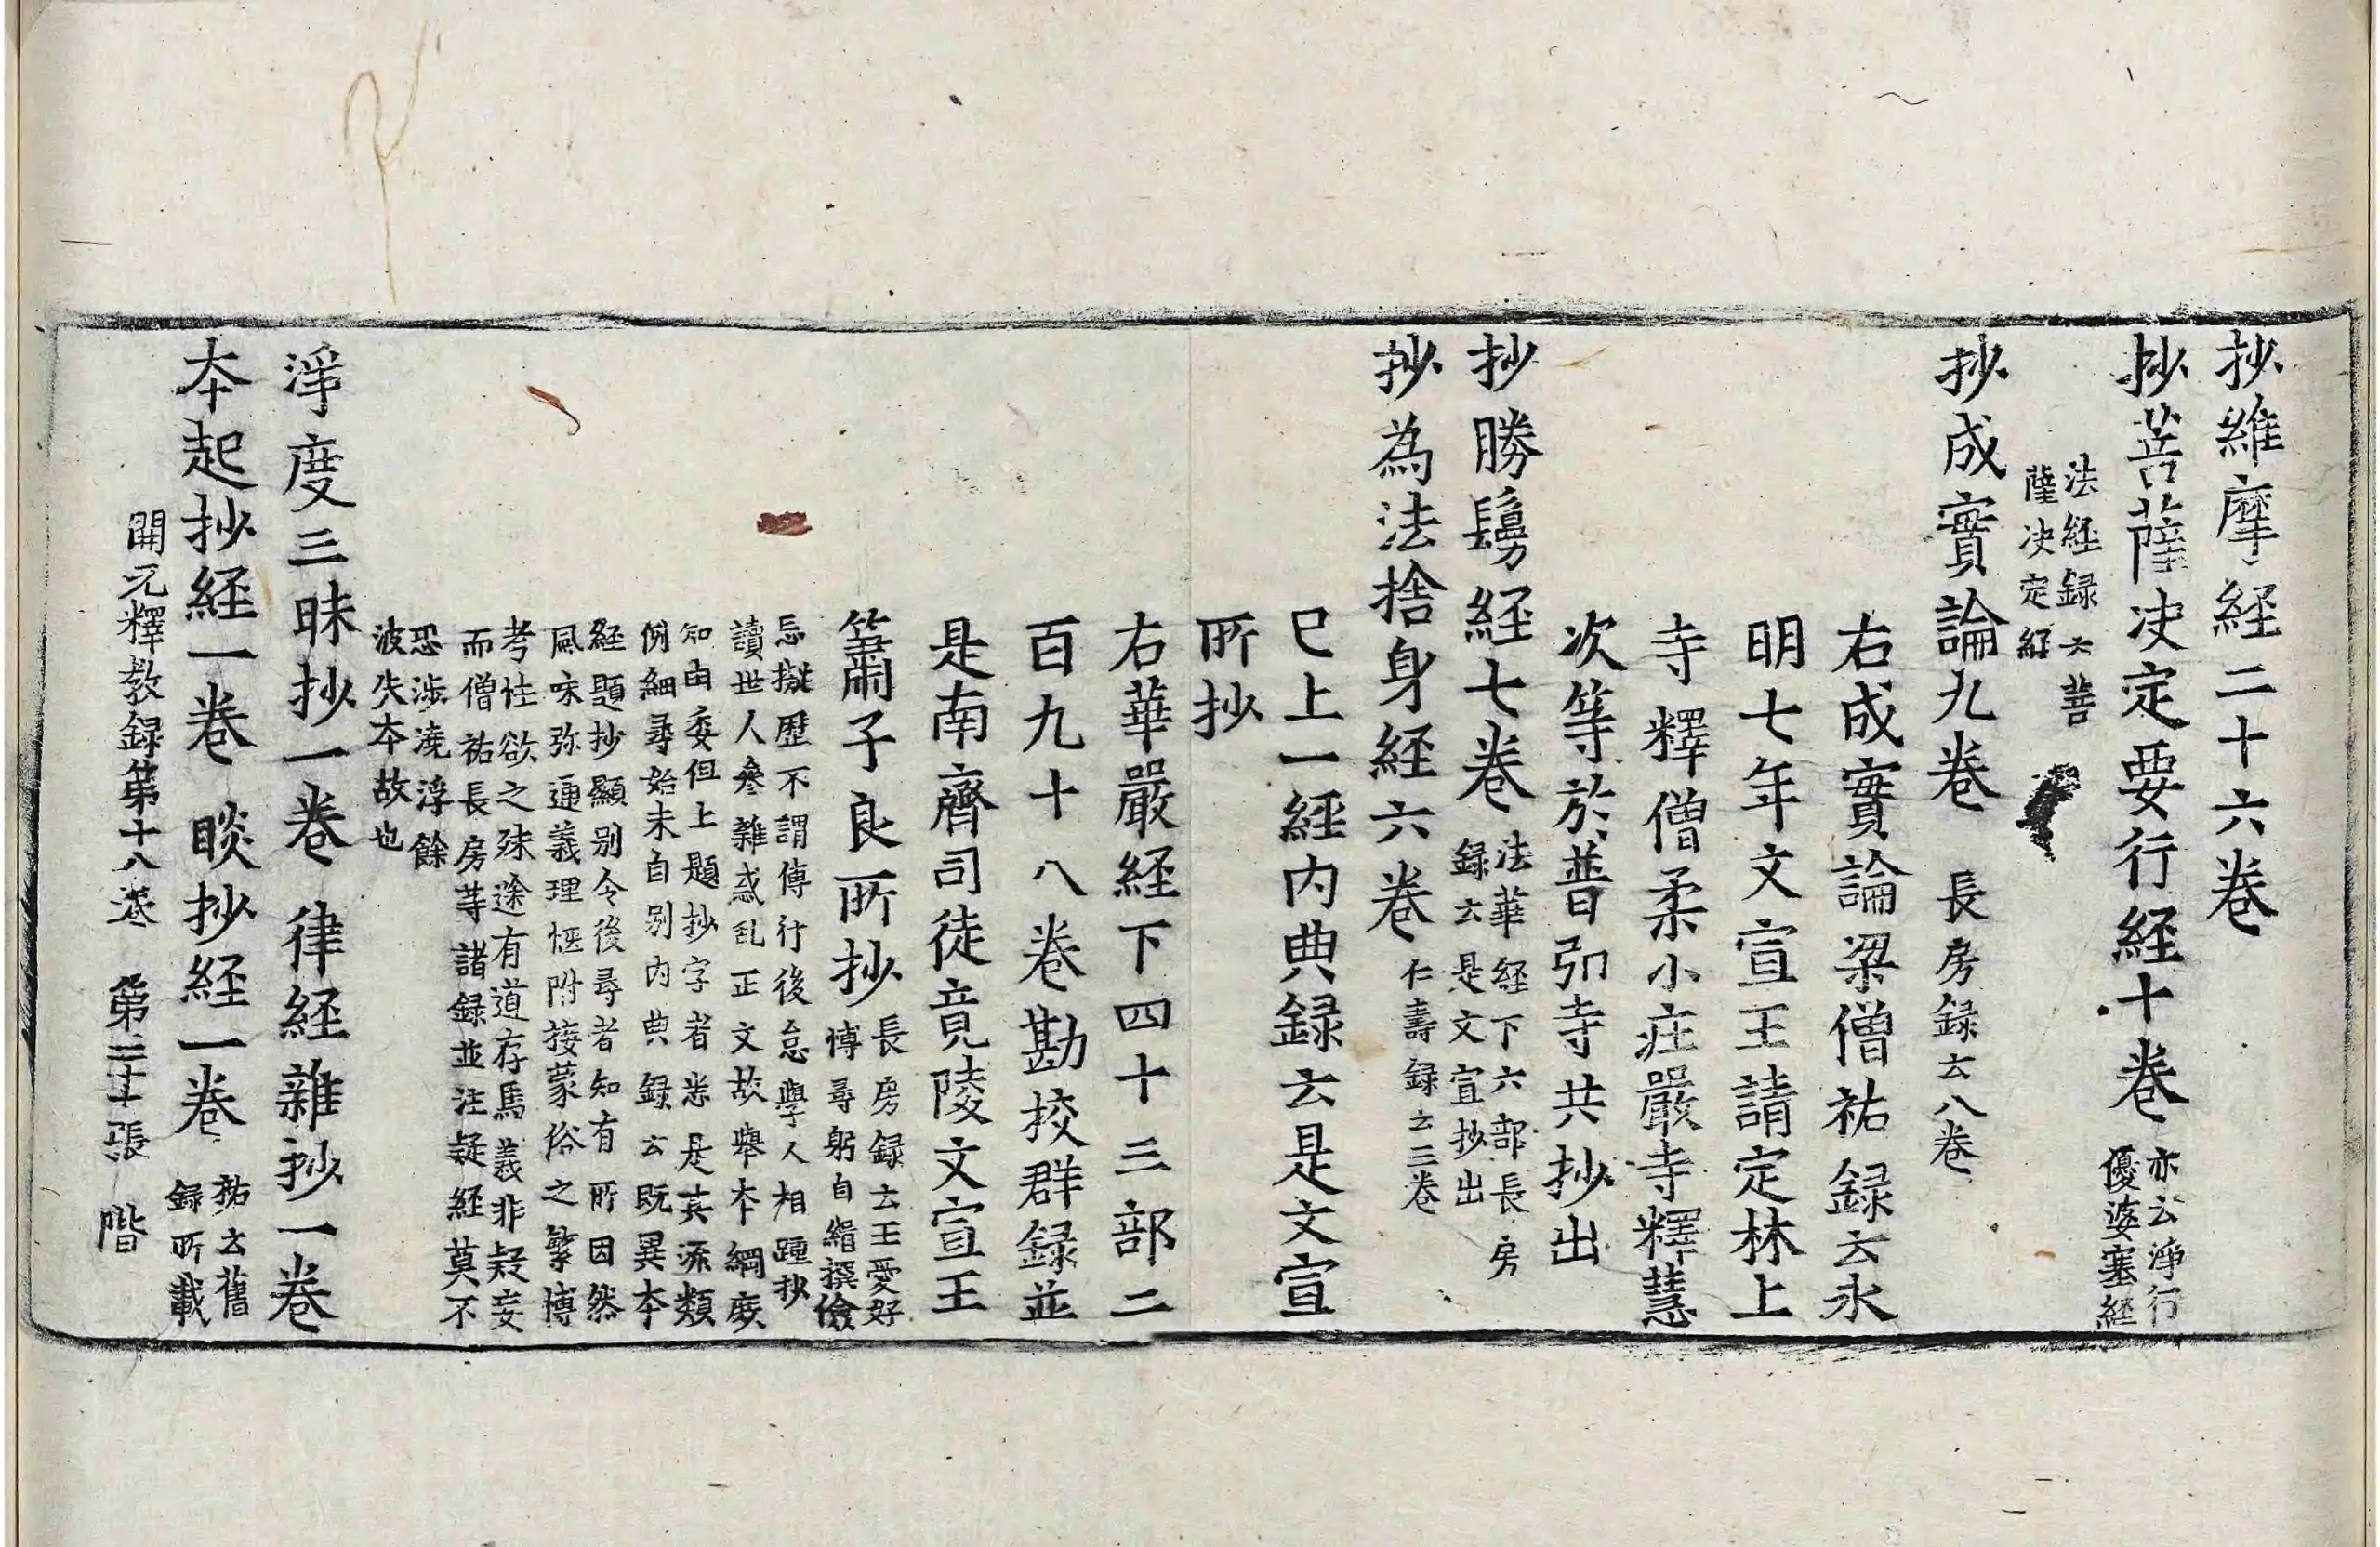 抄維摩經二十六卷
抄菩薩决定要行經十卷 亦云淨行
優婆塞經
法經録云菩
薩决定經
抄成實論九卷 長房録云八卷
右成實論梁僧祐録云永
明七年文宣王請定林上
寺釋僧柔小庄嚴寺釋慧
次等於普弘寺共抄出
抄勝鬘經七卷 法華經下六部長房
録云是文宣抄出
抄為法捨身經六卷 仁壽録云三卷
巳上一經内典録云是文宣
所抄
右華嚴經下四十三部二
百九十八卷勘挍群録並
是南齊司徒竟陵文宣王
簫子良所抄 長房録云王愛好
博尋躬自緝撰儉
忘擬歷不謂傳行後怠學人相踵抄
讀世人叅雜惑乱正文故舉本綱庻
知由委但上題抄字者悉是其流類
例細尋始末自別内典録云既異本
經題抄顯别令後尋者知有所因然
風味弥通義理恆附接蒙俗之繁博
考性欲之殊途有道存焉義非疑妄
而僧祐長房等諸録並注疑經莫不
恐涉澆浮餘
波失本故也
淨度三昧抄一卷 律經雜抄一卷
本起抄經一卷 睒抄經一卷 祐云舊
録所載
開元釋教録第十八卷 第二十張 階